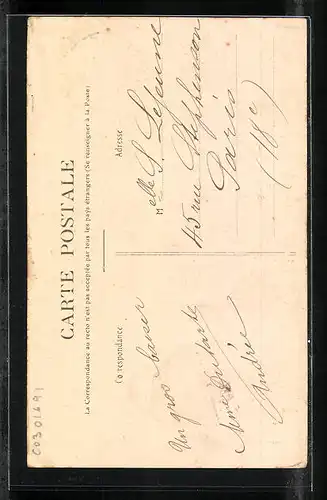 CARTE POSTALE
La Correspondance au recto n'est pas acceptée par tous les pays étrangers (Se renseigner à la Poste)
Correspondance
Un gros baiser
Andrée
Adresse
Melle S. Lejeune
45 rue Stephenson
Paris
(18e)
C0301691